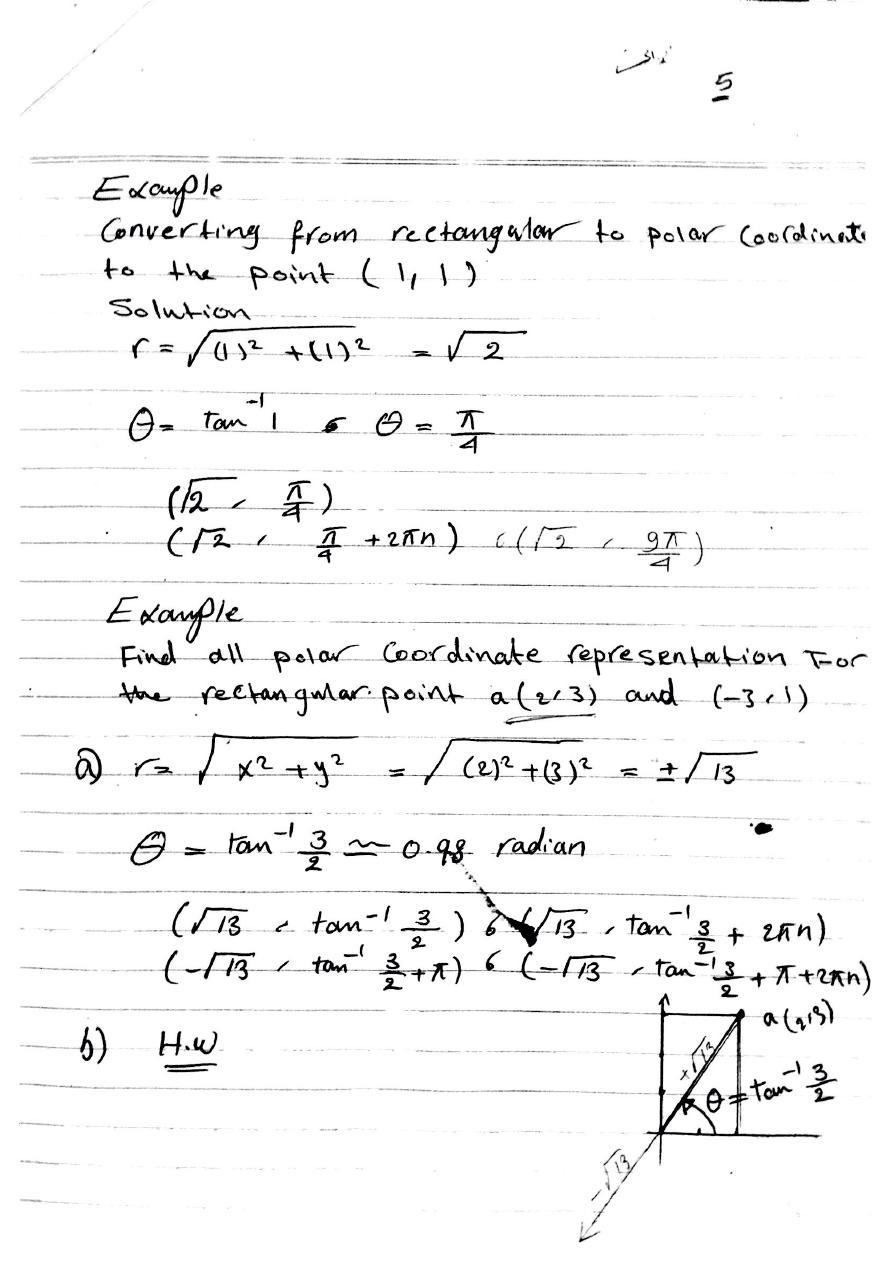 5
Example
Converting from rectangular to polar Coordinate
to the point (1, 1)
Solution
r = √((1)² + (1)²) = √2
θ = tan⁻¹ 1 , θ = π/4
(√2 , π/4)
(√2 , π/4 + 2πn) , (√2 , 9π/4)
Example
Find all polar Coordinate representation For
the rectangular point a(2,3) and (-3,1)
a) r = √(x² + y²) = √((2)² + (3)²) = ±√13
θ = tan⁻¹ 3/2 ≃ 0.98 radian
(√13 , tan⁻¹ 3/2) , (√13 , tan⁻¹ 3/2 + 2πn)
(-√13 , tan⁻¹ 3/2 + π) , (-√13 , tan⁻¹ 3/2 + π + 2πn)
b) H.W
a(2,3)
+√13
θ = tan⁻¹ 3/2
-√13